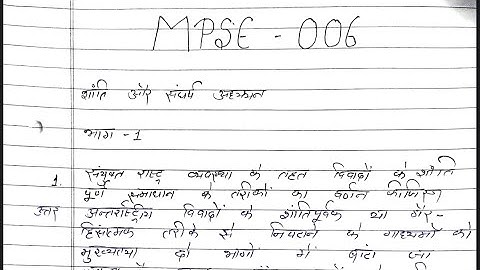 MPSE - 006
शांति और संघर्ष अध्ययन
भाग - 1
1. संयुक्त राष्ट्र व्यवस्था के तहत विवादों के शांति
पूर्ण समाधान के तरीकों का वर्णन कीजिए
उत्तर अन्तर्राष्ट्रीय विवादों के शांतिपूर्वक या गैर-
हिंसात्मक तरीके से निपटाने के माध्यमों को
मुख्यतया दो भागों में बांटा जा